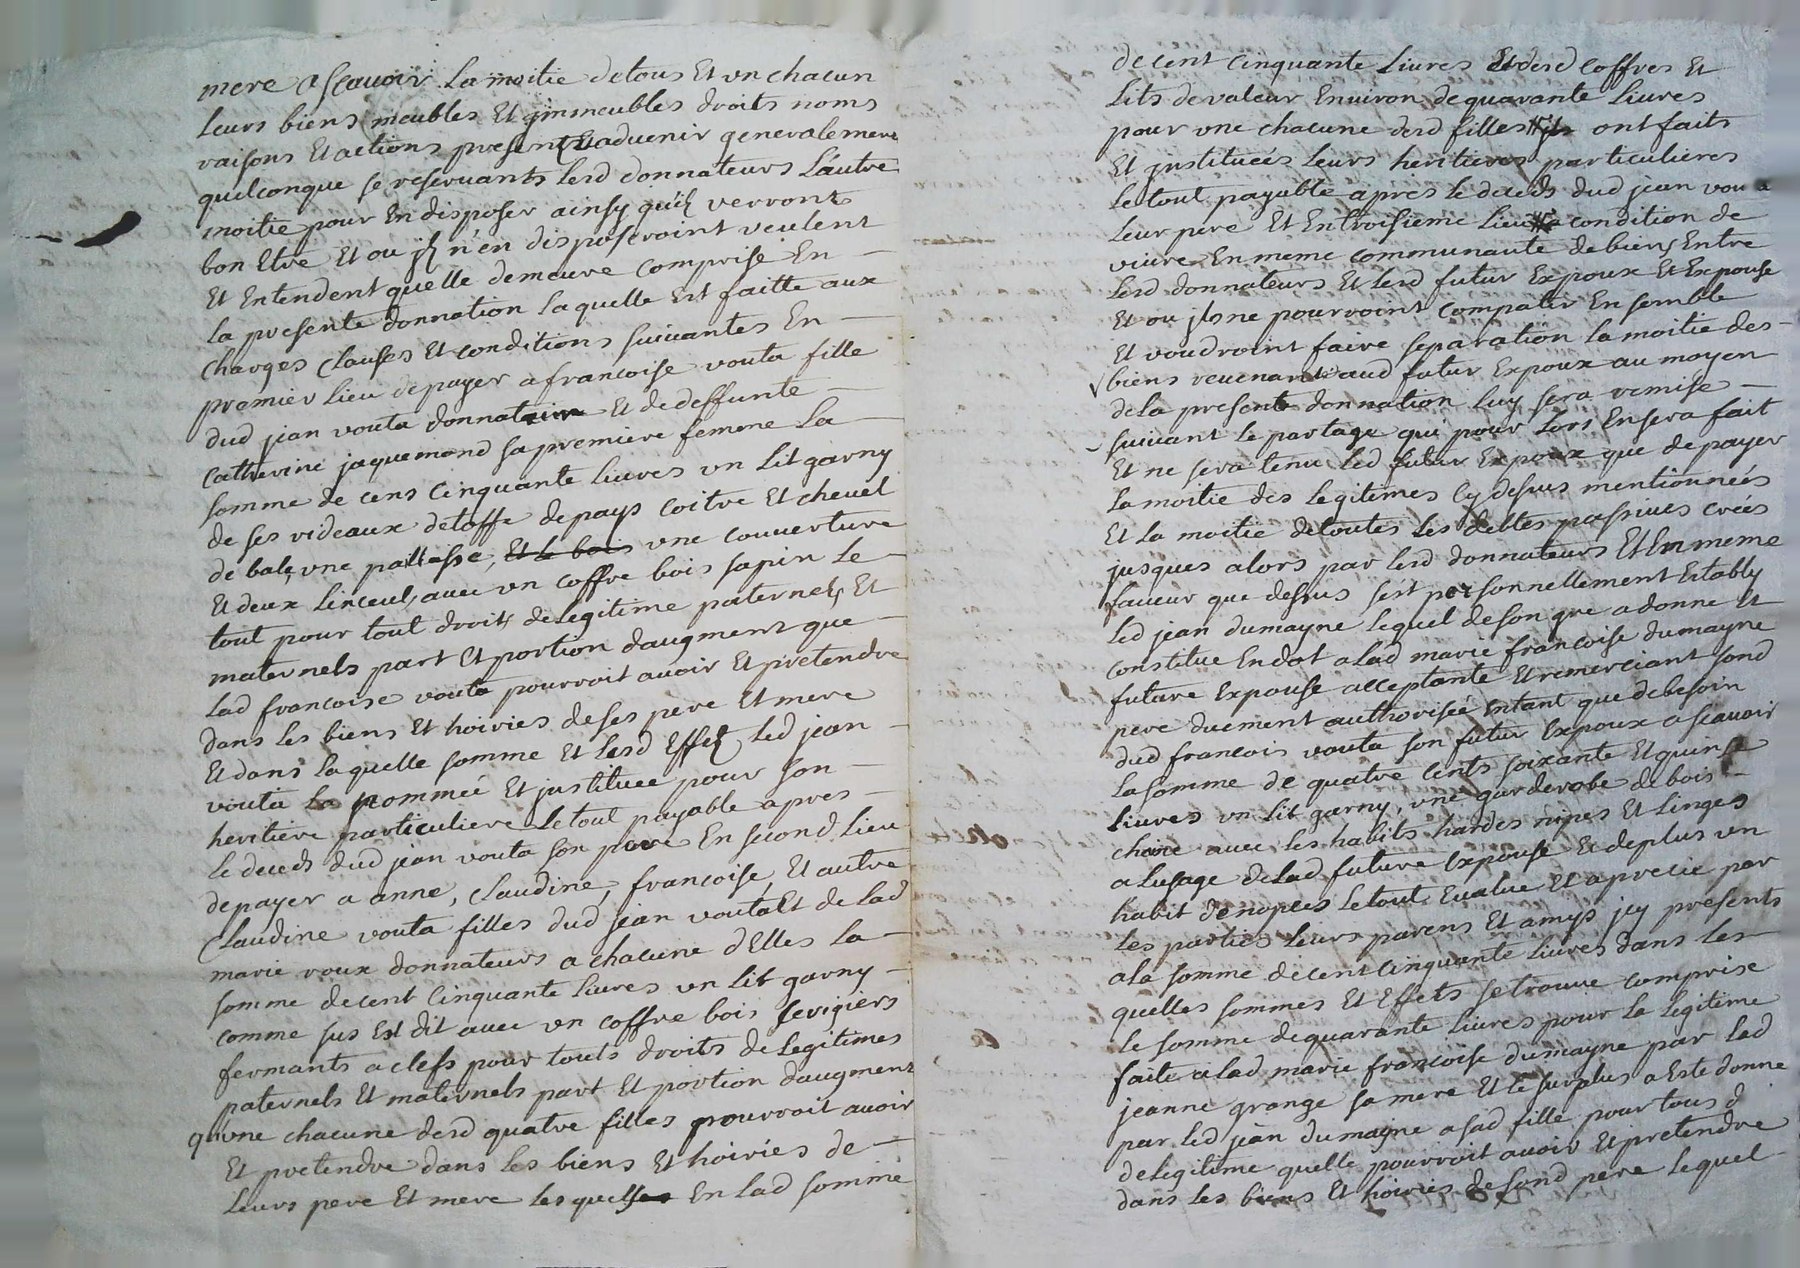 mere a scauoir la moitie de tous Et vn chacun
leurs biens meubles Et jmmeubles droits noms
raisons Et actions presents Et aduenir generalement
quelconque se reseruants lesd donnateurs L'autre
moitie pour En disposer ainsy qu'ils verront
bon Etre Et ou jls n'en disposeroint veulent
Et Entendent quelle demeure comprise En
la presente donnation laquelle Est faitte aux
charges clauses Et conditions suiuantes En
premier lieu de payer a francoise vouta fille
dud jean vouta donnataire Et de deffunte
Catherine jaquemond sa premiere femme La
somme de cens cinquante liures vn Lit garny
de ses rideaux detoffe de pays coitre Et cheuet
de bale, vne paillasse, Et le bois vne couuerture
Et deux linceuls, auec vn coffre bois sapin le
tout pour tout droits de legitime paternels Et
maternels part Et portion daugment que
lad francoise vouta pourroit auoir Et pretendre
dans les biens Et hoiries de ses pere Et mere
Et dans laquelle somme Et lesd Effets led jean
vouta la nommeé Et jnstituee pour son
heritiere particuliere Le tout payable apres
le deceds dud jean vouta son pere En second lieu
de payer a anne, Claudine, francoise, Et autre
Claudine vouta filles dud jean vouta Et de lad
marie roux donnateurs a chacune dElles La
somme de cent cinquante liures vn Lit garny
comme sus Est dit auec vn coffre bois serigiers
fermants a clefs pour touts droits de Legitimes
paternels Et maternels part Et portion daugment
qu'vne chacune desd quatre filles pourroit auoir
Et pretendre dans les biens Et hoiries de
Leurs pere Et mere lesquelles En lad somme
de cent cinquante liures Et desd coffres Et
Lits de valeur Enuiron de quarante liures
pour vne chacune desd filles jls ont faits
Et jnstitueés leurs heritieres particulieres
Le tout payable apres le deceds dud jean vouta
leur pere Et En troisieme lieu a condition de
viure En meme communaute de biens Entre
lesd donnateurs Et lesd futur Expoux Et Expouse
Et ou jls ne pourroint compatir Ensemble
Et voudroint faire separation la moitie des
biens reuenant aud futur Expoux au moyen
de la presente donnation luy sera remise
suiuant le partage qui pour Lors En sera fait
Et ne sera tenu led futur Expoux que de payer
La moitie des legitimes Cy desus mentionneés
Et la moitie de toutes les debtes passiues creés
jusques alors par lesd donnateurs Et En meme
faueur que dessus s'est personnellement Estably
Led jean dumayne lequel de son gre a donne Et
constitue En dot a lad marie francoise dumayne
future Expouse acceptante Et remerciant sond
pere duement authorisée Entant que de besoin
dud francois vouta son futur Expoux a scauoir
La somme de quatre cents soixante Et quinse
liures vn lit garny, vne garderobe de bois
chaine auec les habits hardes nipes Et linges
a lusage de lad future Expouse Et de plus vn
habit de nopces Le tout Evalue Et aprecie par
Les parties Leurs parens Et amys jcy presents
a la somme de cent cinquante liures dans les
quelles sommes Et Effets se trouue comprise
le somme de quarante liures pour la legitime
faite a lad marie francoise dumayne par lad
jeanne grange sa mere Et le surplus a Este donne
par led jean dumayne a sad fille pour tous d
de legitime quelle pourroit auoir Et pretendre
dans les biens Et hoiries de sond pere lequel